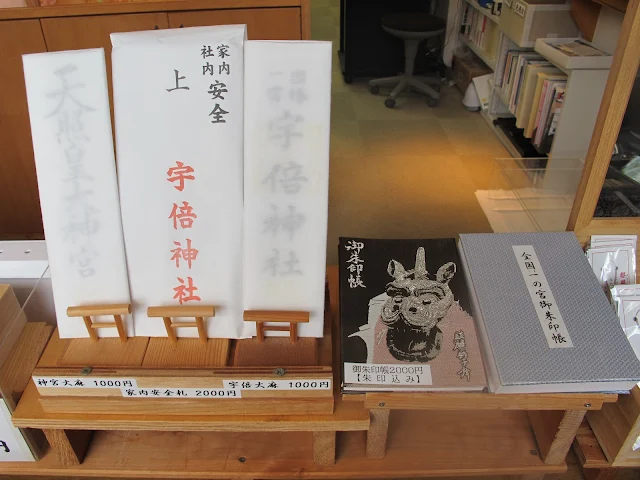 天照皇大神宮
家内
社内
安全
上
宇倍神社
宇倍神社
神宮大麻 1000円
家内安全札 2000円
宇倍大麻 1000円
御朱印帳
御朱印帳2000円
【朱印込み】
全国一の宮御朱印帳
円